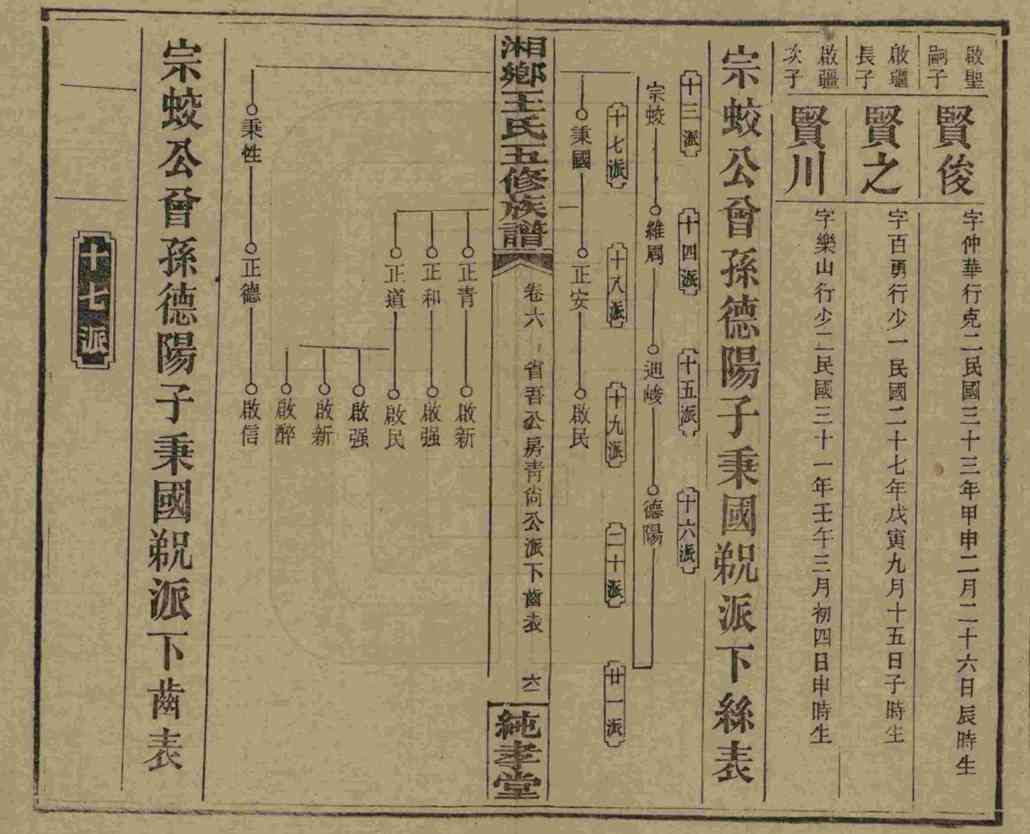 啟聖
嗣子
賢俊
字仲華行克二民國三十三年甲申二月二十六日辰時生
啟疆
長子
賢之
字百勇行少一民國二十七年戊寅九月十五日子時生
啟疆
次子
賢川
字樂山行少二民國三十一年壬午三月初四日申時生
宗蛟公曾孫德陽子秉國觬派下絲表
十三派
十四派
十五派
十六派
宗蛟
維周
廸峻
德陽
十七派
十八派
十九派
二十派
廿一派
秉國
正安
啟民
湘鄉王氏五修族譜
卷六
省吾公房青尙公派下齒表
六一
純孝堂
正青
啟新
正和
啟强
正道
啟民
啟强
啟新
啟醉
秉性
正德
啟信
宗蛟公曾孫德陽子秉國觬派下齒表
十七派